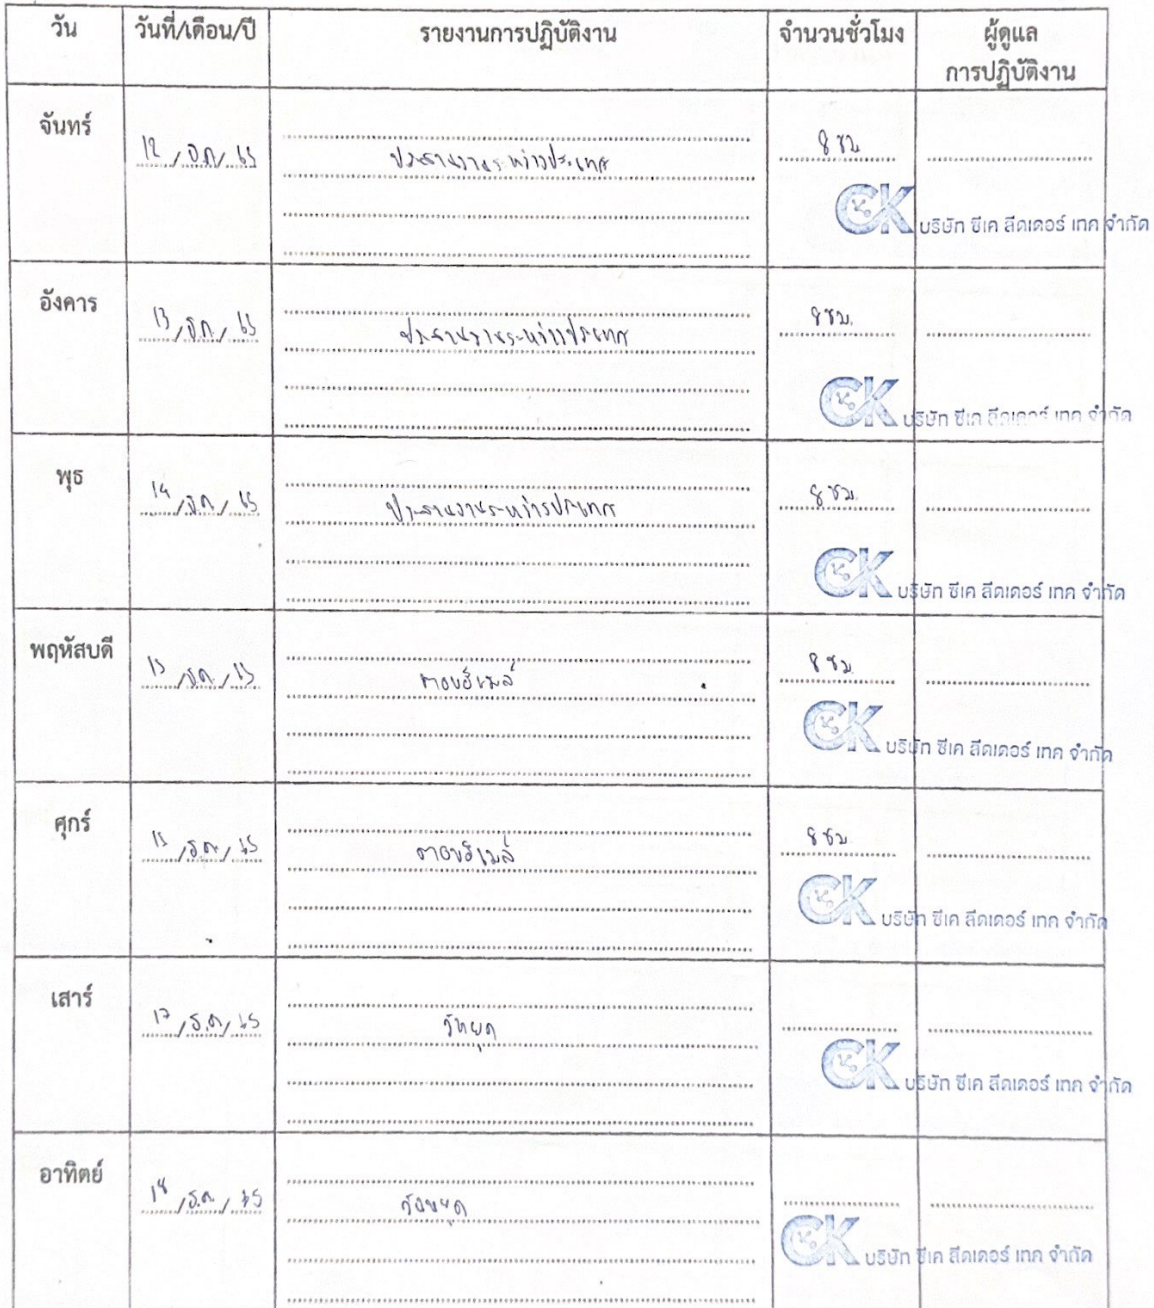 วัน วันที่/เดือน/ปี รายงานการปฏิบัติงาน จำนวนชั่วโมง ผู้ดูแล
การปฏิบัติงาน
จันทร์
12 / ธ.ค / 65 ประสานงานระหว่างประเทศ 8 ชม.
CK บริษัท ซีเค ลีดเดอร์ เทค จำกัด
อังคาร
13 / ธ.ค. / 65 ประสานงานระหว่างประเทศ 8 ชม.
CK บริษัท ซีเค ลีดเดอร์ เทค จำกัด
พุธ
14 / ธ.ค / 65 ประสานงานระหว่างประเทศ 8 ชม.
CK บริษัท ซีเค ลีดเดอร์ เทค จำกัด
พฤหัสบดี
15 / ธ.ค. / 65 ตอบอีเมล์ 8 ชม.
CK บริษัท ซีเค ลีดเดอร์ เทค จำกัด
ศุกร์
/ ธ.ค. / 65 ตอบอีเมล์ 8 ชม.
CK บริษัท ซีเค ลีดเดอร์ เทค จำกัด
เสาร์
17 / ธ.ค. / 65
CK บริษัท ซีเค ลีดเดอร์ เทค จำกัด
อาทิตย์
18 / ธ.ค. / 65 วันหยุด
CK บริษัท ซีเค ลีดเดอร์ เทค จำกัด